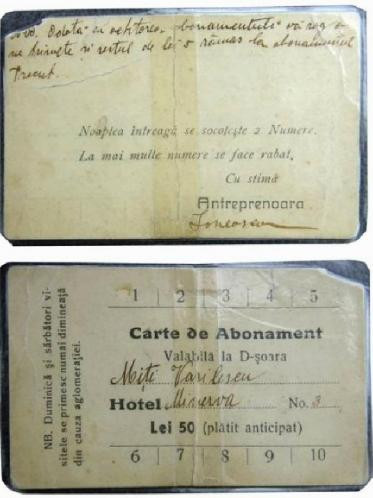 odată cu achitarea abonamentului vă rog a
ne trimete și restul de lei 5 rămas la abonamentul
trecut.
Noaptea întreagă se socotește 2 Numere.
La mai multe numere se face rabat.
Cu stimă
Antreprenoara
Ionescu
1 2 3 4 5
Carte de Abonament
Valabila la D-șoara
Mița Vasilescu
Hotel Minerva No. 3
Lei 50 (plătit anticipat)
6 7 8 9 10
NB. Duminică și sărbători vi-
sitele se primesc numai dimineață
din cauza aglomerației.